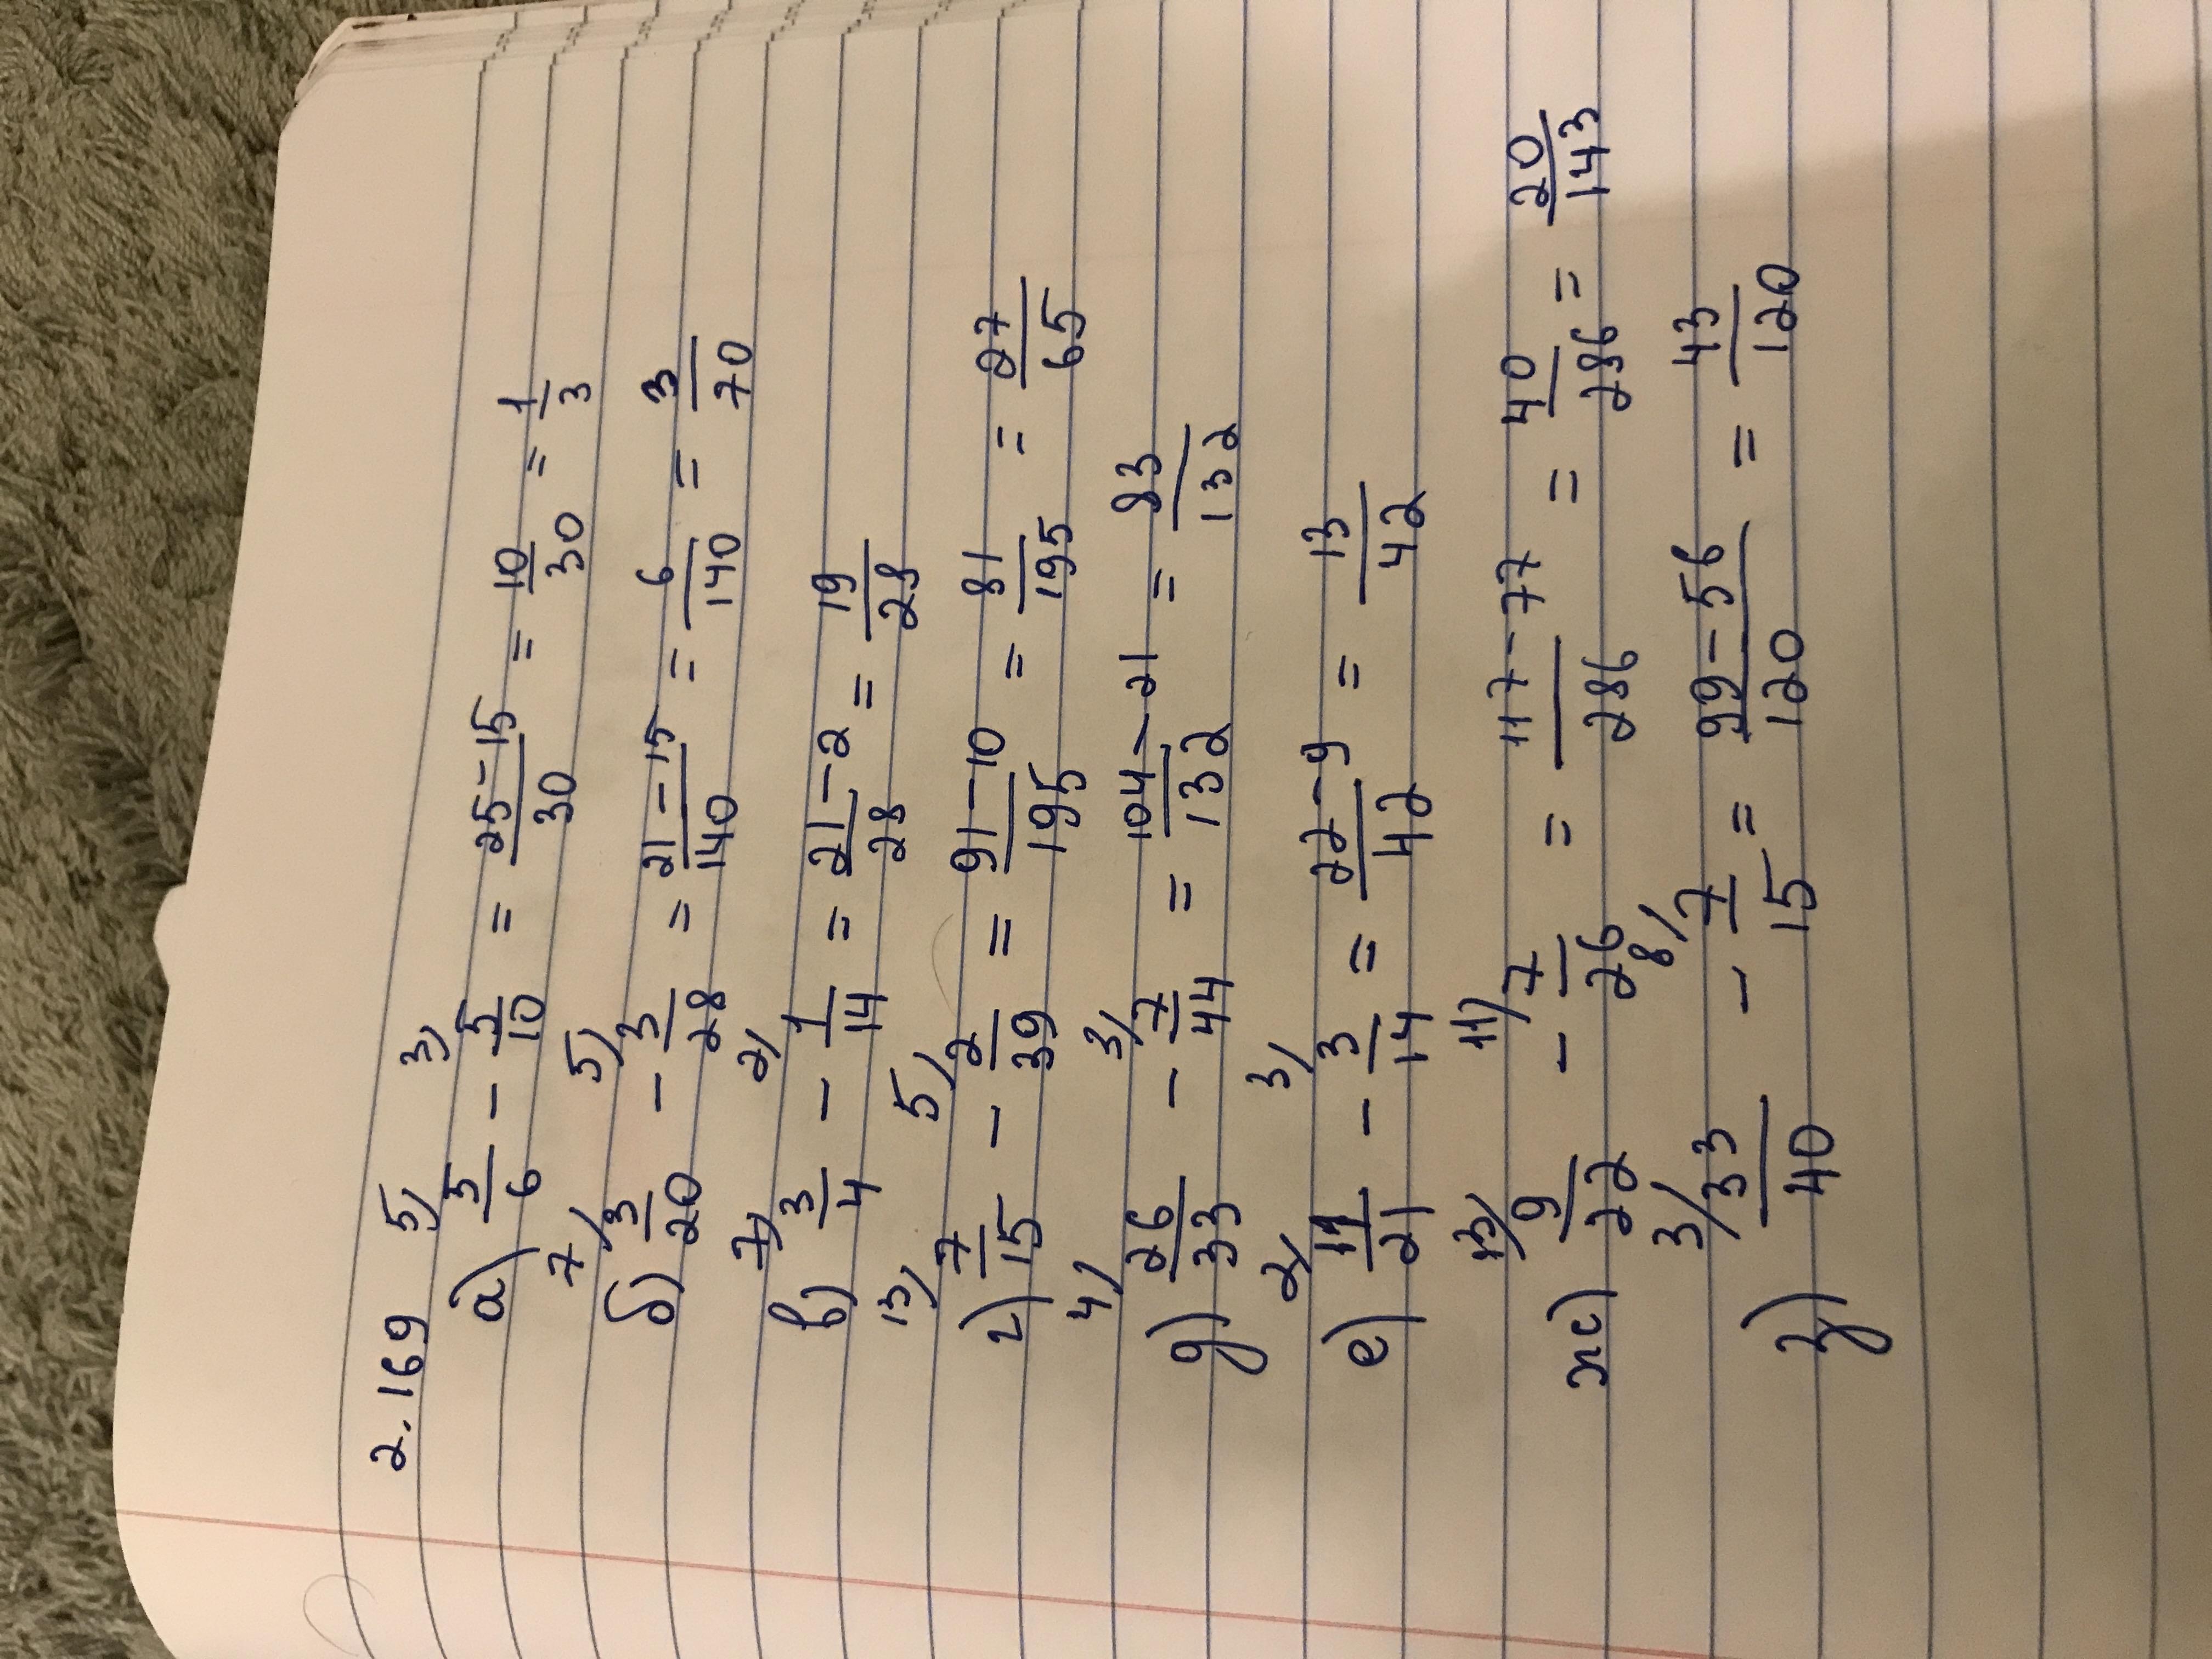 2.169
а) 5/ 5/6 - 3/ 5/10 = 25-15/30 = 10/30 = 1/3
б) 7/ 3/20 - 5/ 3/28 = 21-15/140 = 6/140 = 3/70
в) 7/ 3/4 - 2/ 1/14 = 21-2/28 = 19/28
г) 13/ 7/15 - 5/ 2/39 = 91-10/195 = 81/195 = 27/65
д) 4/ 26/33 - 3/ 7/44 = 104-21/132 = 83/132
е) 2/ 11/21 - 3/ 3/14 = 22-9/42 = 13/42
ж) 13/ 9/22 - 11/ 7/26 = 117-77/286 = 40/286 = 20/143
з) 3/ 33/40 - 8/ 7/15 = 99-56/120 = 43/120